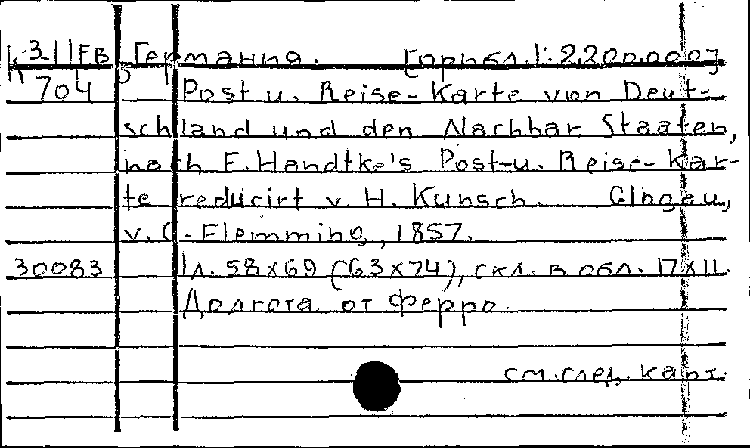 К 3-11 ЕВ Германия. [орибл. 1:2.200.000]
704 Post u. Reise-Karte von Deut-
schland und den Nachbar Staaten,
nach F. Handtke's Post-u. Reise-Kar-
te reducirt v H. Kunsch. Glogau,
v. C. Flemming, 1857.
30083 1л. 58x69 (63x74), скл. в обл. 17x11.
Долгота от Ферро.
см. след. карт.